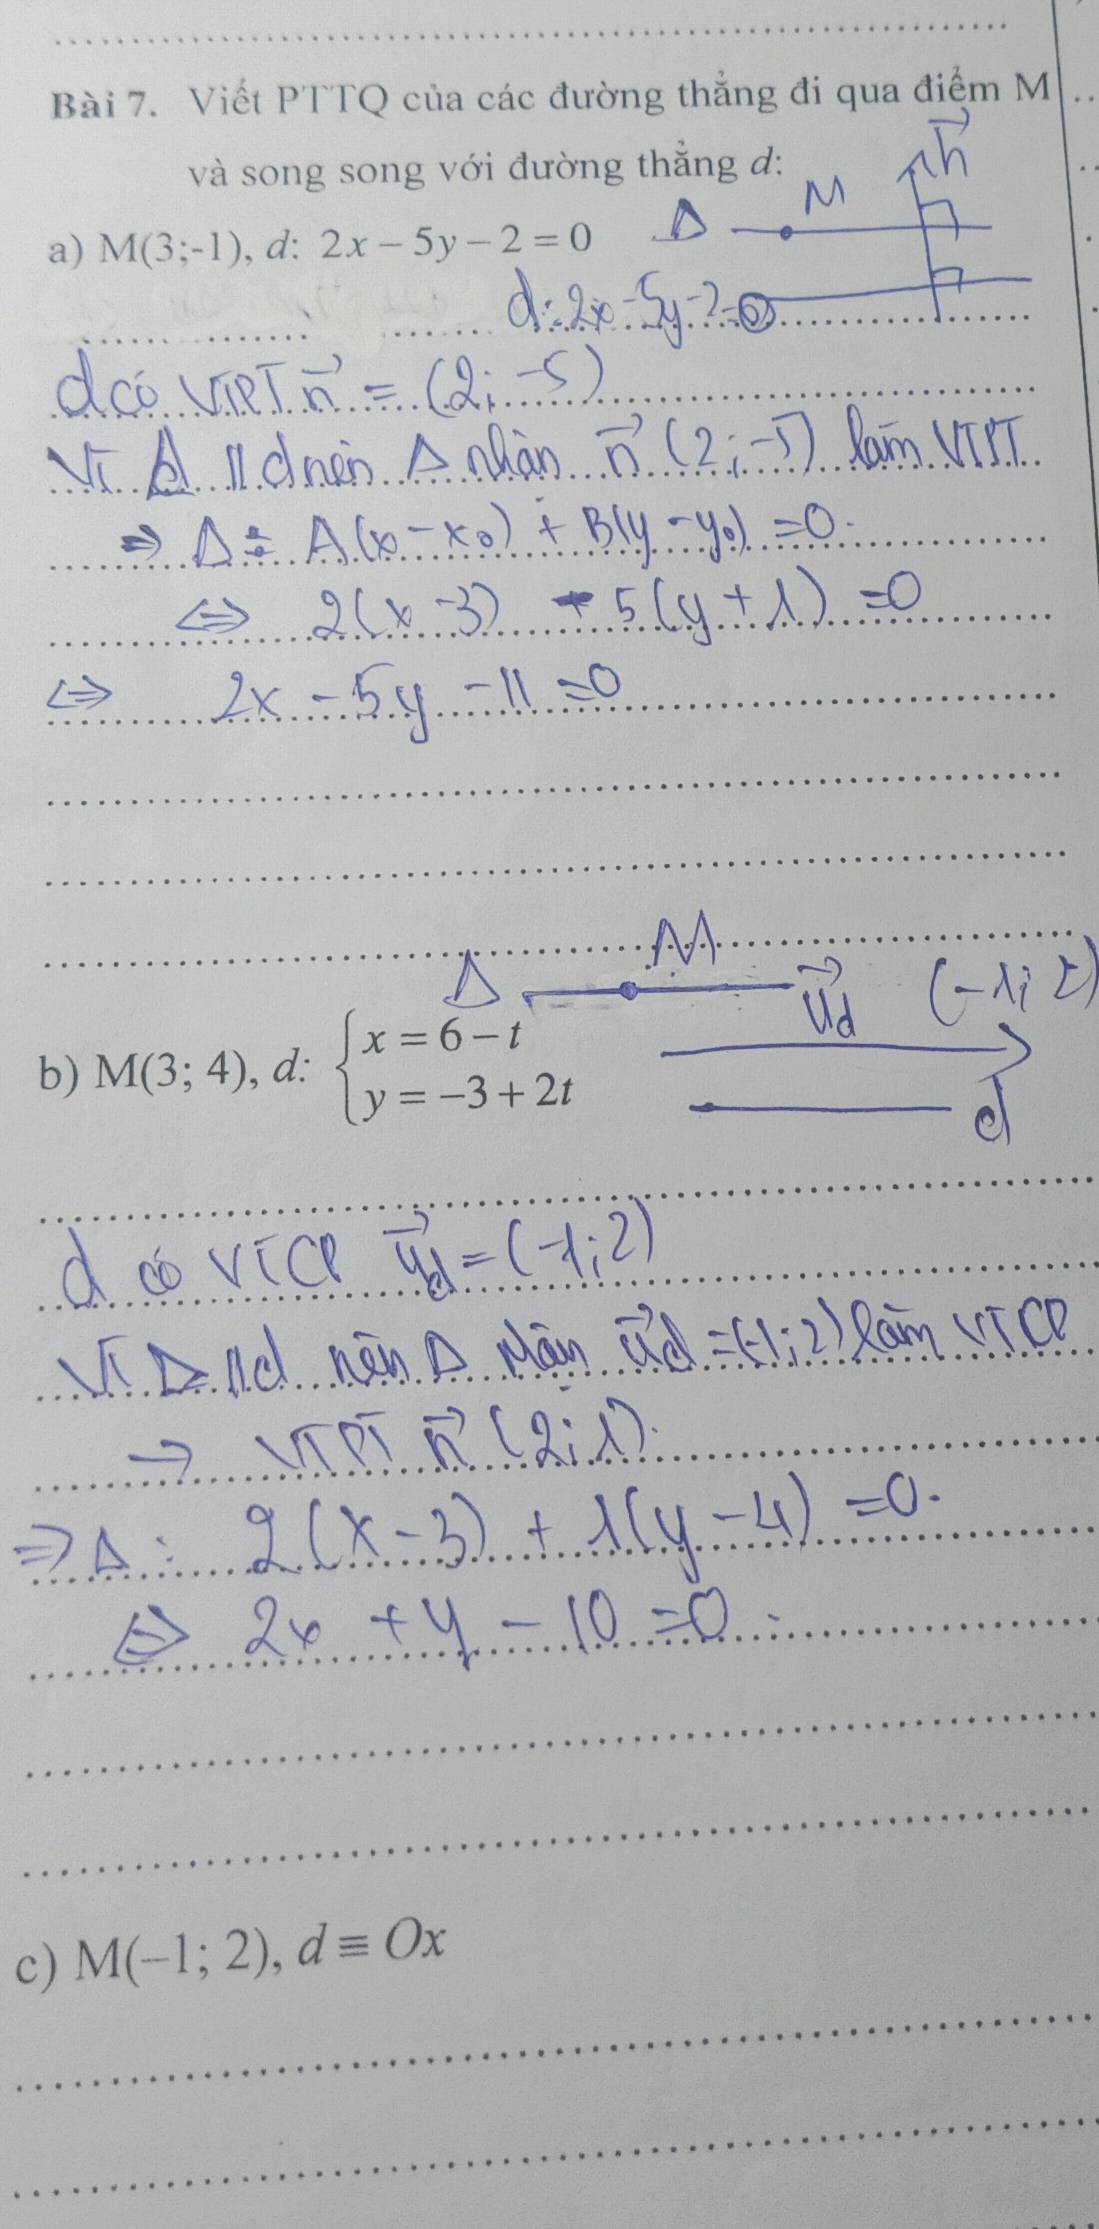 Bài 7. Viết PTTQ của các đường thẳng đi qua điểm M
và song song với đường thẳng d:
n⃗
M
Δ
a) M(3;-1), d: 2x − 5y − 2 = 0
d: 2x - 5y - 2 = 0
d có VTPT n⃗ = (2; -5)
Vì Δ // d nên Δ nhận n⃗ (2; -5) làm VTPT
⇒ Δ : A(x - x₀) + B(y - y₀) = 0.
⇔ 2(x - 3) - 5(y + 1) = 0
⇔ 2x - 5y - 11 = 0
M
Δ
u⃗d (-1; 2)
b) M(3; 4), d: { x = 6 − t
y = −3 + 2t
d
d có VTCP u⃗d = (-1; 2)
Vì Δ // d nên Δ nhận u⃗d = (-1; 2) làm VTCP
→ VTPT n⃗ (2; 1).
⇒ Δ : 2(x - 3) + 1(y - 4) = 0.
⇔ 2x + y - 10 = 0.
c) M(−1; 2), d ≡ Ox